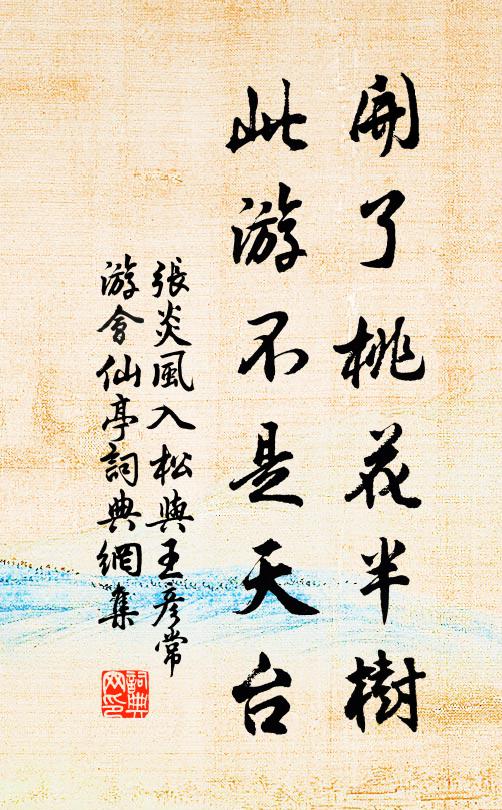 開了桃花半樹
此游不是天台
張炎風入松與王彥常
游會仙亭詞典網集
詞典
网印